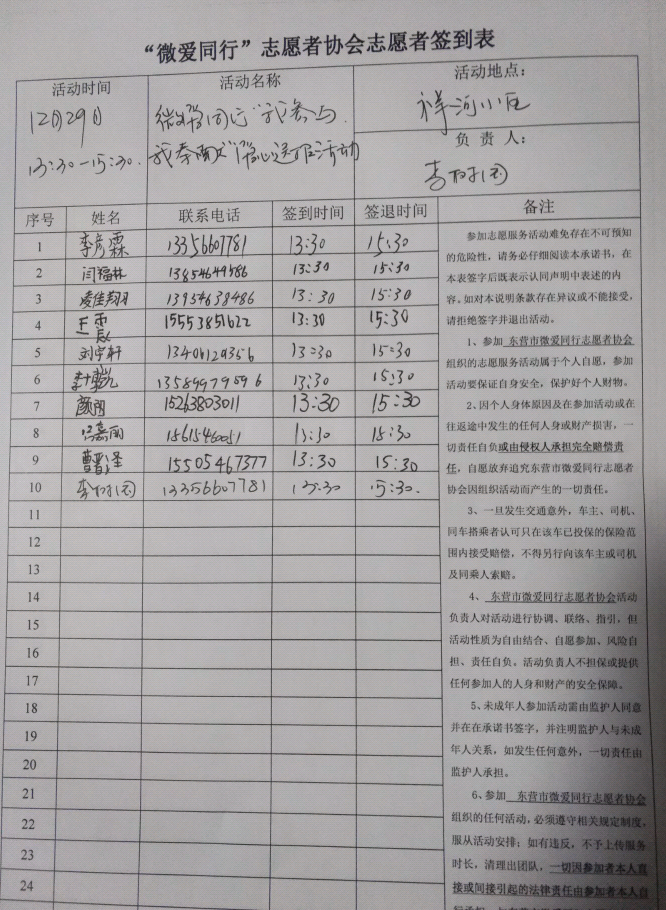 “微爱同行”志愿者协会志愿者签到表
活动时间
12月29日
13:30-15:30.
活动名称
微爱同行“我参与.
我奉献”暖心送福活动
活动地点:
祥河小区
负责人:
李树园
序号 姓名 联系电话 签到时间 签退时间 备注
1 李彦霖 13356607781 13:30 15:30
2 闫福林 13854649586 13:30 15:30
3 凌佳翔 13954638486 13:30 15:30
4 15553851622 13:30 15:30
5 刘宇轩 13:30 15:30
6 13589979596 13:30 15:30
7 颜翔 15263803011 13:30 15:30
8 冯嘉丽 13:30 15:30
9 15505467377 13:30 15:30
10 李树园 13356607781 13:30 15:30.
11
12
13
14
15
16
17
18
19
20
21
22
23
24
参加志愿服务活动难免存在不可预知
的危险性，请务必仔细阅读本承诺书，在
本表签字后既表示认同声明中表述的内
容。如对本说明条款存在异议或不能接受，
请拒绝签字并退出活动。
1、参加 东营市微爱同行志愿者协会
组织的志愿服务活动属于个人自愿，参加
活动要保证自身安全，保护好个人财物。
2、因个人身体原因及在参加活动或在
往返途中发生的任何人身或财产损害，一
切责任自负或由侵权人承担完全赔偿责
任，自愿放弃追究东营市微爱同行志愿者
协会因组织活动而产生的一切责任。
3、一旦发生交通意外，车主、司机、
同车搭乘者认可只在该车已投保的保险范
围内接受赔偿，不得另行向该车主或司机
及同乘人索赔。
4、 东营市微爱同行志愿者协会活动
负责人对活动进行协调、联络、指引，但
活动性质为自由结合、自愿参加、风险自
担、责任自负。活动负责人不担保或提供
任何参加人的人身和财产的安全保障。
5、未成年人参加活动需由监护人同意
并在在承诺书签字，并注明监护人与未成
年人关系，如发生任何意外，一切责任由
监护人承担。
6、参加 东营市微爱同行志愿者协会
组织的任何活动，必须遵守相关规定制度，
服从活动安排；如有违反，不予上传服务
时长，清理出团队，一切因参加者本人直
接或间接引起的法律责任由参加者本人自